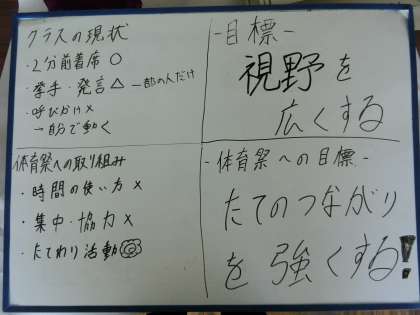 クラスの現状
・2分前着席 ○
・挙手・発言 △ → 一部の人だけ
・呼びかけ ×
→ 自分で動く
-目標-
視野を
広くする
体育祭への取り組み
・時間の使い方 ×
・集中・協力 ×
・たてわり活動 ◎
-体育祭への目標-
たてのつながり
を強くする!